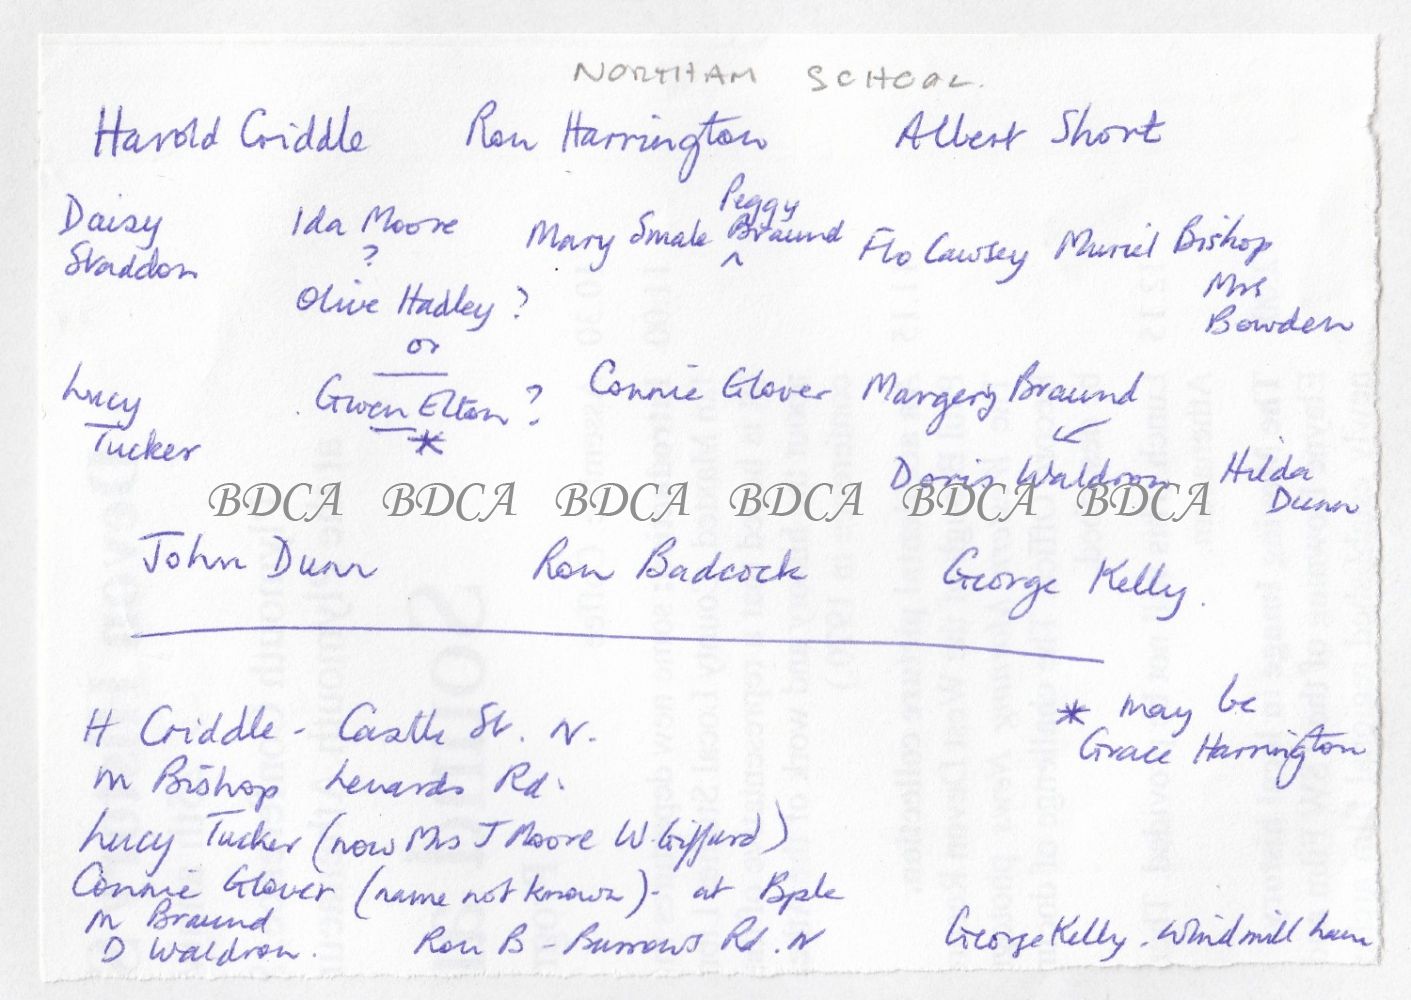 NORTHAM SCHOOL.
Harold Criddle Ron Harrington Albert Short
Peggy
Daisy Ida Moore Mary Smale Braund Flo Cawsey Muriel Bishop
Staddon ? ^
Olive Hadley ? Mrs
Bowden
or
Lucy Gwen Elton ? Connie Glover Margery Braund
Tucker *
Doris Waldron Hilda
Dunn
BDCA BDCA BDCA BDCA BDCA BDCA
John Dunn Ron Badcock George Kelly.
H Criddle - Castle St. N. * may be
Grace Harrington
M Bishop Lenards Rd.
Lucy Tucker (now Mrs J Moore W. Giffard)
Connie Glover (name not known) - at Bple
M Braund
D Waldron. Ron B - Burrows Rd. N George Kelly. Windmill Lane